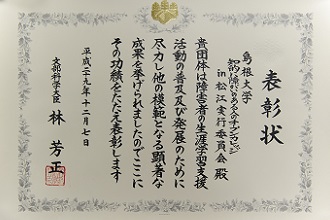 表彰状
島根大学
知的に障がいのある人のオープンカレッジ
in松江実行委員会 殿
貴団体は障害者の生涯学習支援
活動の普及及び発展のために
尽力し他の模範となる顕著な
成果を挙げられましたのでここに
その功績をたたえ表彰します
平成二十九年十二月七日
文部科学大臣 林 芳正